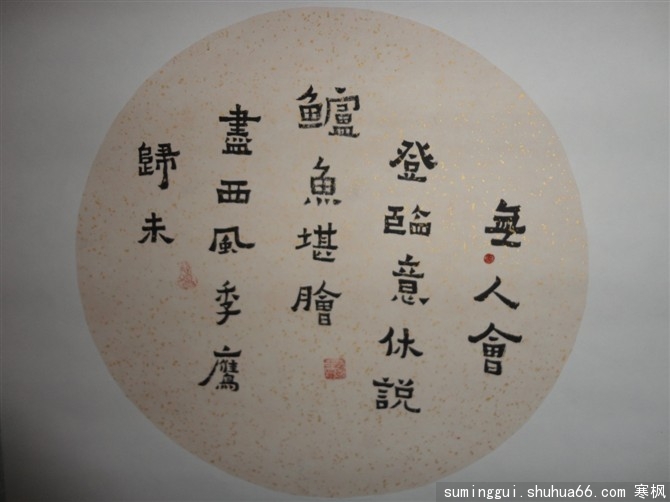 無人會
登臨意休説
鱸魚堪膾
盡西風季鷹
歸未
suminggui.shuhua66.com 寒枫